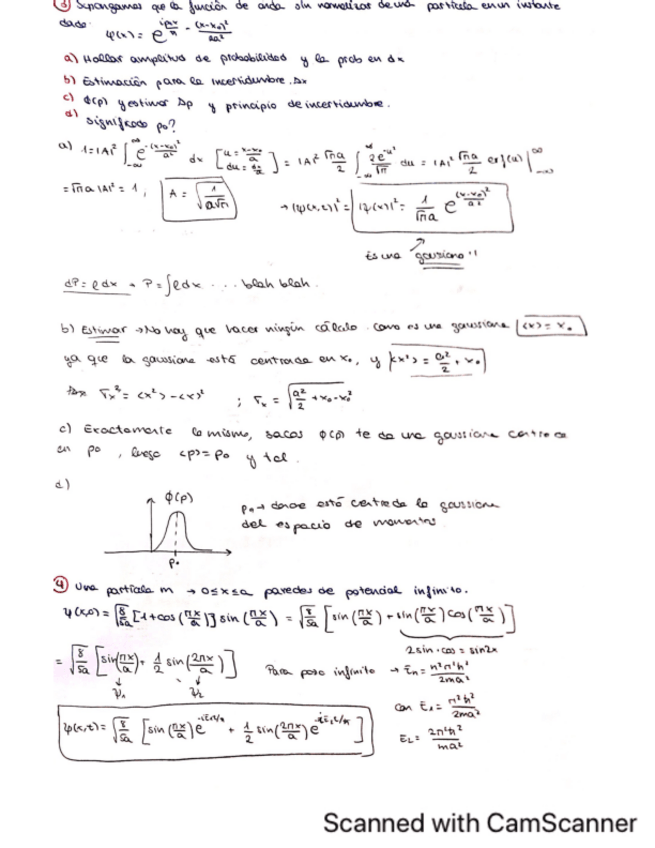 ③ Supongamos que la función de onda sin normalizar de una partícula en un instante
dado: φ(x) = e^{ip₀x/ħ - (x-x₀)²/2a²}
a) Hallar amplitud de probabilidad y la prob en dx
b) Estimación para la incertidumbre Δx
c) φ(p) y estimar Δp y principio de incertidumbre.
d) Significado p₀?
a) 1 = |A|² ∫_{-∞}^{∞} e^{-(x-x₀)²/a²} dx [u = (x-x₀)/a, du = dx/a] = |A|² √π a/2 ∫_{-∞}^{∞} 2e^{-u²}/√π du = |A|² √π a/2 erf(u)|_{-∞}^{∞}
= √π a |A|² = 1, A = √(1/(a√π)) → |ψ(x,t)|² = |ψ(x)|² = 1/(√π a) e^{(x-x₀)²/a²}
Es una gaussiana !!
dP = ρdx → P = ∫ρdx ... blah blah.
b) Estimar → No hay que hacer ningún cálculo. Como es una gaussiana <x> = x₀
ya que la gaussiana está centrada en x₀, y <x²> = a²/2 + x₀
σx² = <x²> - <x>² ; σx = √(a²/2 + x₀ - x₀²)
c) Exactamente lo mismo, sacas φ(p) te da una gaussiana centrada
en p₀, luego <p> = p₀ y tal.
d)
φ(p)
p₀ → donde está centrada la gaussiana
del espacio de momentos
p₀
④ Una partícula m → 0≤x≤a paredes de potencial infinito.
ψ(x,0) = √(8/5a) [1+cos(πx/a)] sin(πx/a) = √(8/5a) [sin(πx/a) + sin(πx/a) cos(πx/a)]
2sin·cos = sin2x
= √(8/5a) [sin(πx/a) + 1/2 sin(2πx/a)] Para pozo infinito → En = n²π²ħ²/2ma²
ψ₁ ψ₂
con E₁ = π²ħ²/2ma²
ψ(x,t) = √(8/5a) [sin(πx/a) e^{-iE₁t/ħ} + 1/2 sin(2πx/a) e^{-iE₂t/ħ}]
E₂ = 2π²ħ²/ma²
Scanned with CamScanner